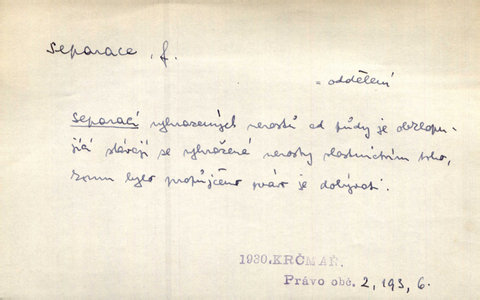 separace, f.
= oddělení
Separací vyhrazených nerostů od půdy je
stávají se vyhražené nerosty vlastnictvím toho,
komu bylo propůjčeno právo je dobývati.
1930. KRČMAŘ.
Právo obč. 2, 193, 6.